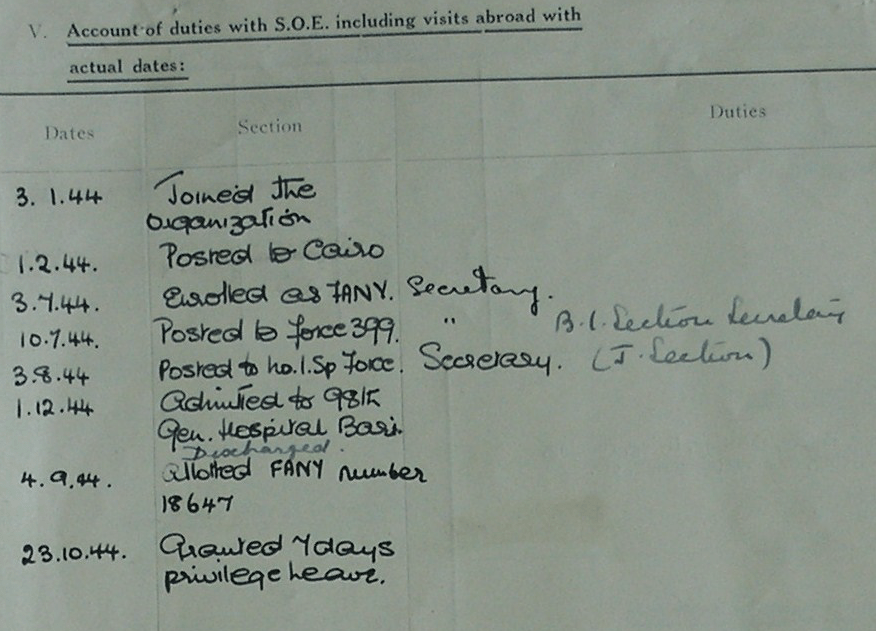 V. Account of duties with S.O.E. including visits abroad with
actual dates:
Dates Section Duties
3. 1.44 Joined the
organization
1.2.44. Posted to Cairo
3.7.44. Enrolled as FANY. Secretary.
10.7.44. Posted to force 399. " B.1. Section Secretary
3.8.44 Posted to no.1.Sp Force. Secretary. (J. Section)
1.12.44 Admitted to 98th
Gen. Hospital Bari.
Discharged.
4.9.44. allotted FANY number
18647
23.10.44. Granted 7days
privilege leave.